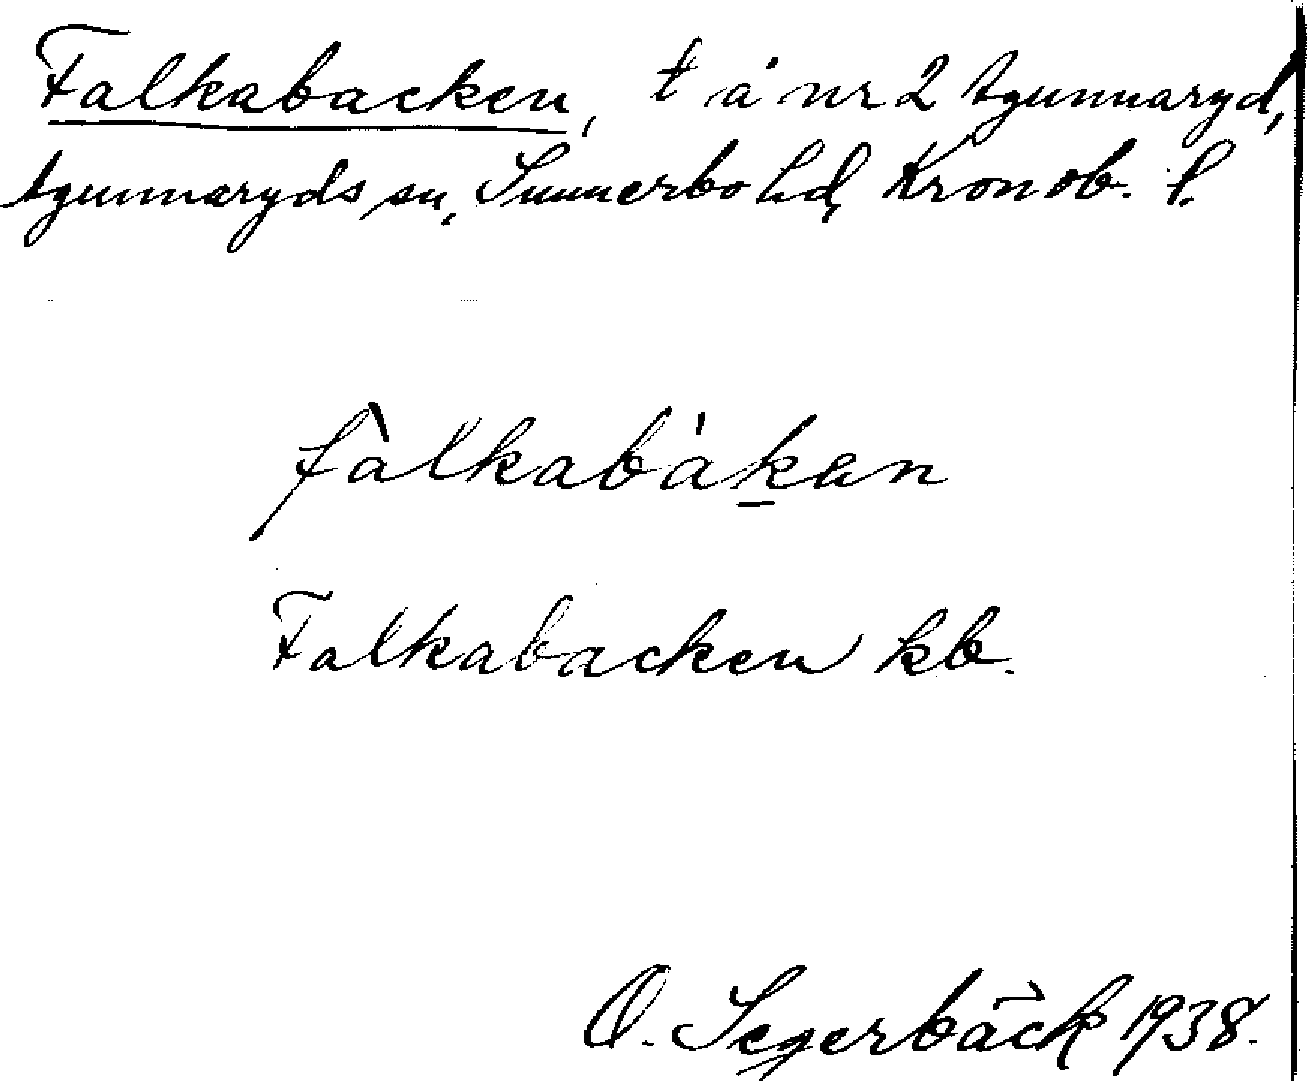 Falkabacken, t å nr 2 Agunnaryd,
Agunnaryds sn, Sunnerbo hd, Kronob. l.
fàlkabákan
Falkabacken kb.
O. Segerbäck 1938.